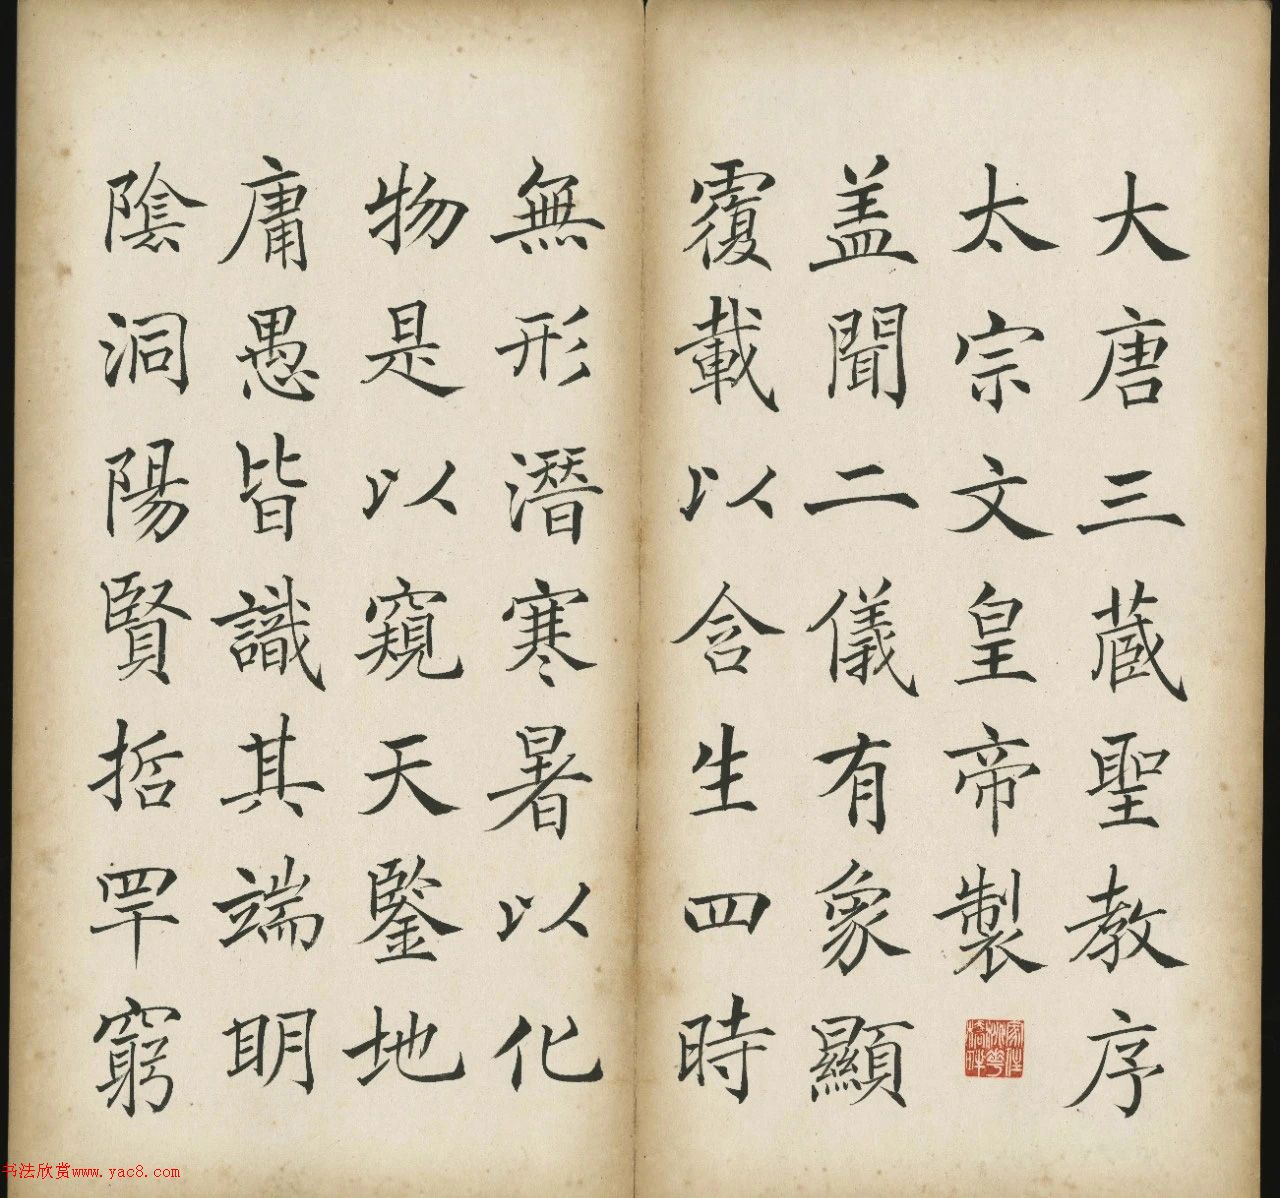 大唐三蔵聖教序
太宗文皇帝製
盖聞二儀有象顯
覆載以含生四時
無形潛寒暑以化
物是以窺天鑒地
庸愚皆識其端明
陰洞陽賢哲罕窮
书法欣赏www.yac8.com